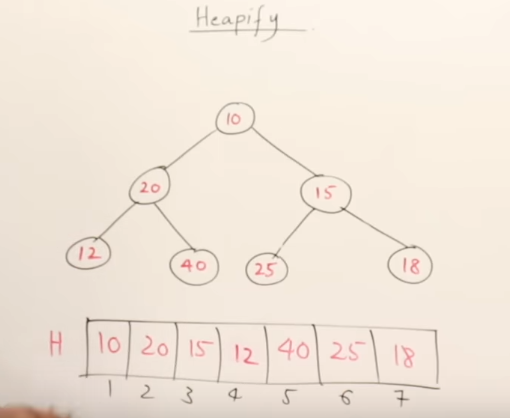 Heapify
10
20 15
12 40 25 18
H 10 20 15 12 40 25 18
1 2 3 4 5 6 7